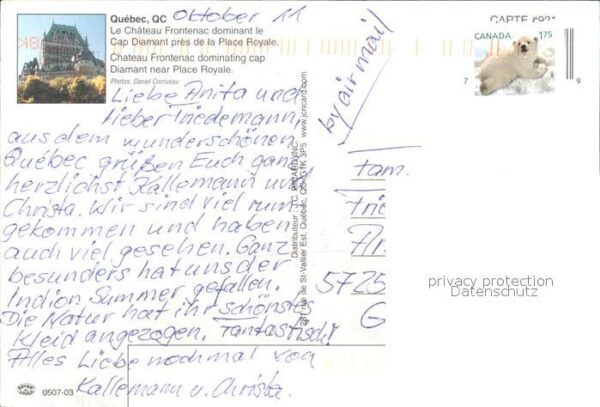 Québec, QC
Oktober 11
Le Château Frontenac dominant le
Cap Diamant près de la Place Royale.
Chateau Frontenac dominating cap
Diamant near Place Royale.
Photos: Daniel Corriveau
Liebe Anita und
lieber Friedemann,
aus dem wunderschönen
Québec grüßen Euch ganz
herzlichst Kallemann und
Christa. Wir sind viel rum
gekommen und haben
auch viel gesehen. Ganz
besunders hat uns der
Indion Summer gefallen.
Die Natur hat ihr schönstes
Kleid angezogen. Fantastisch!
Alles Liebe nochmal von
Kallemann u. Christa.
0507-03
by air mail
www.jcricard.com
CANADA 175
7
9
Fam.
5725
G
privacy protection
Datenschutz